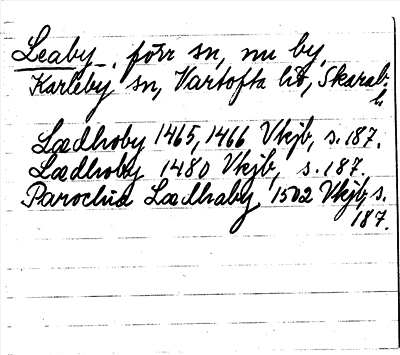 Leaby, förr sn, nu by,
Karleby sn, Vartofta hd, Skarab.
l.
Lædhroby 1465, 1466 Vkjb, s. 187.
Lædhroby 1480 Vkjb, s. 187.
Parochia Lædhaby 1502 Vkjb, s.
187.